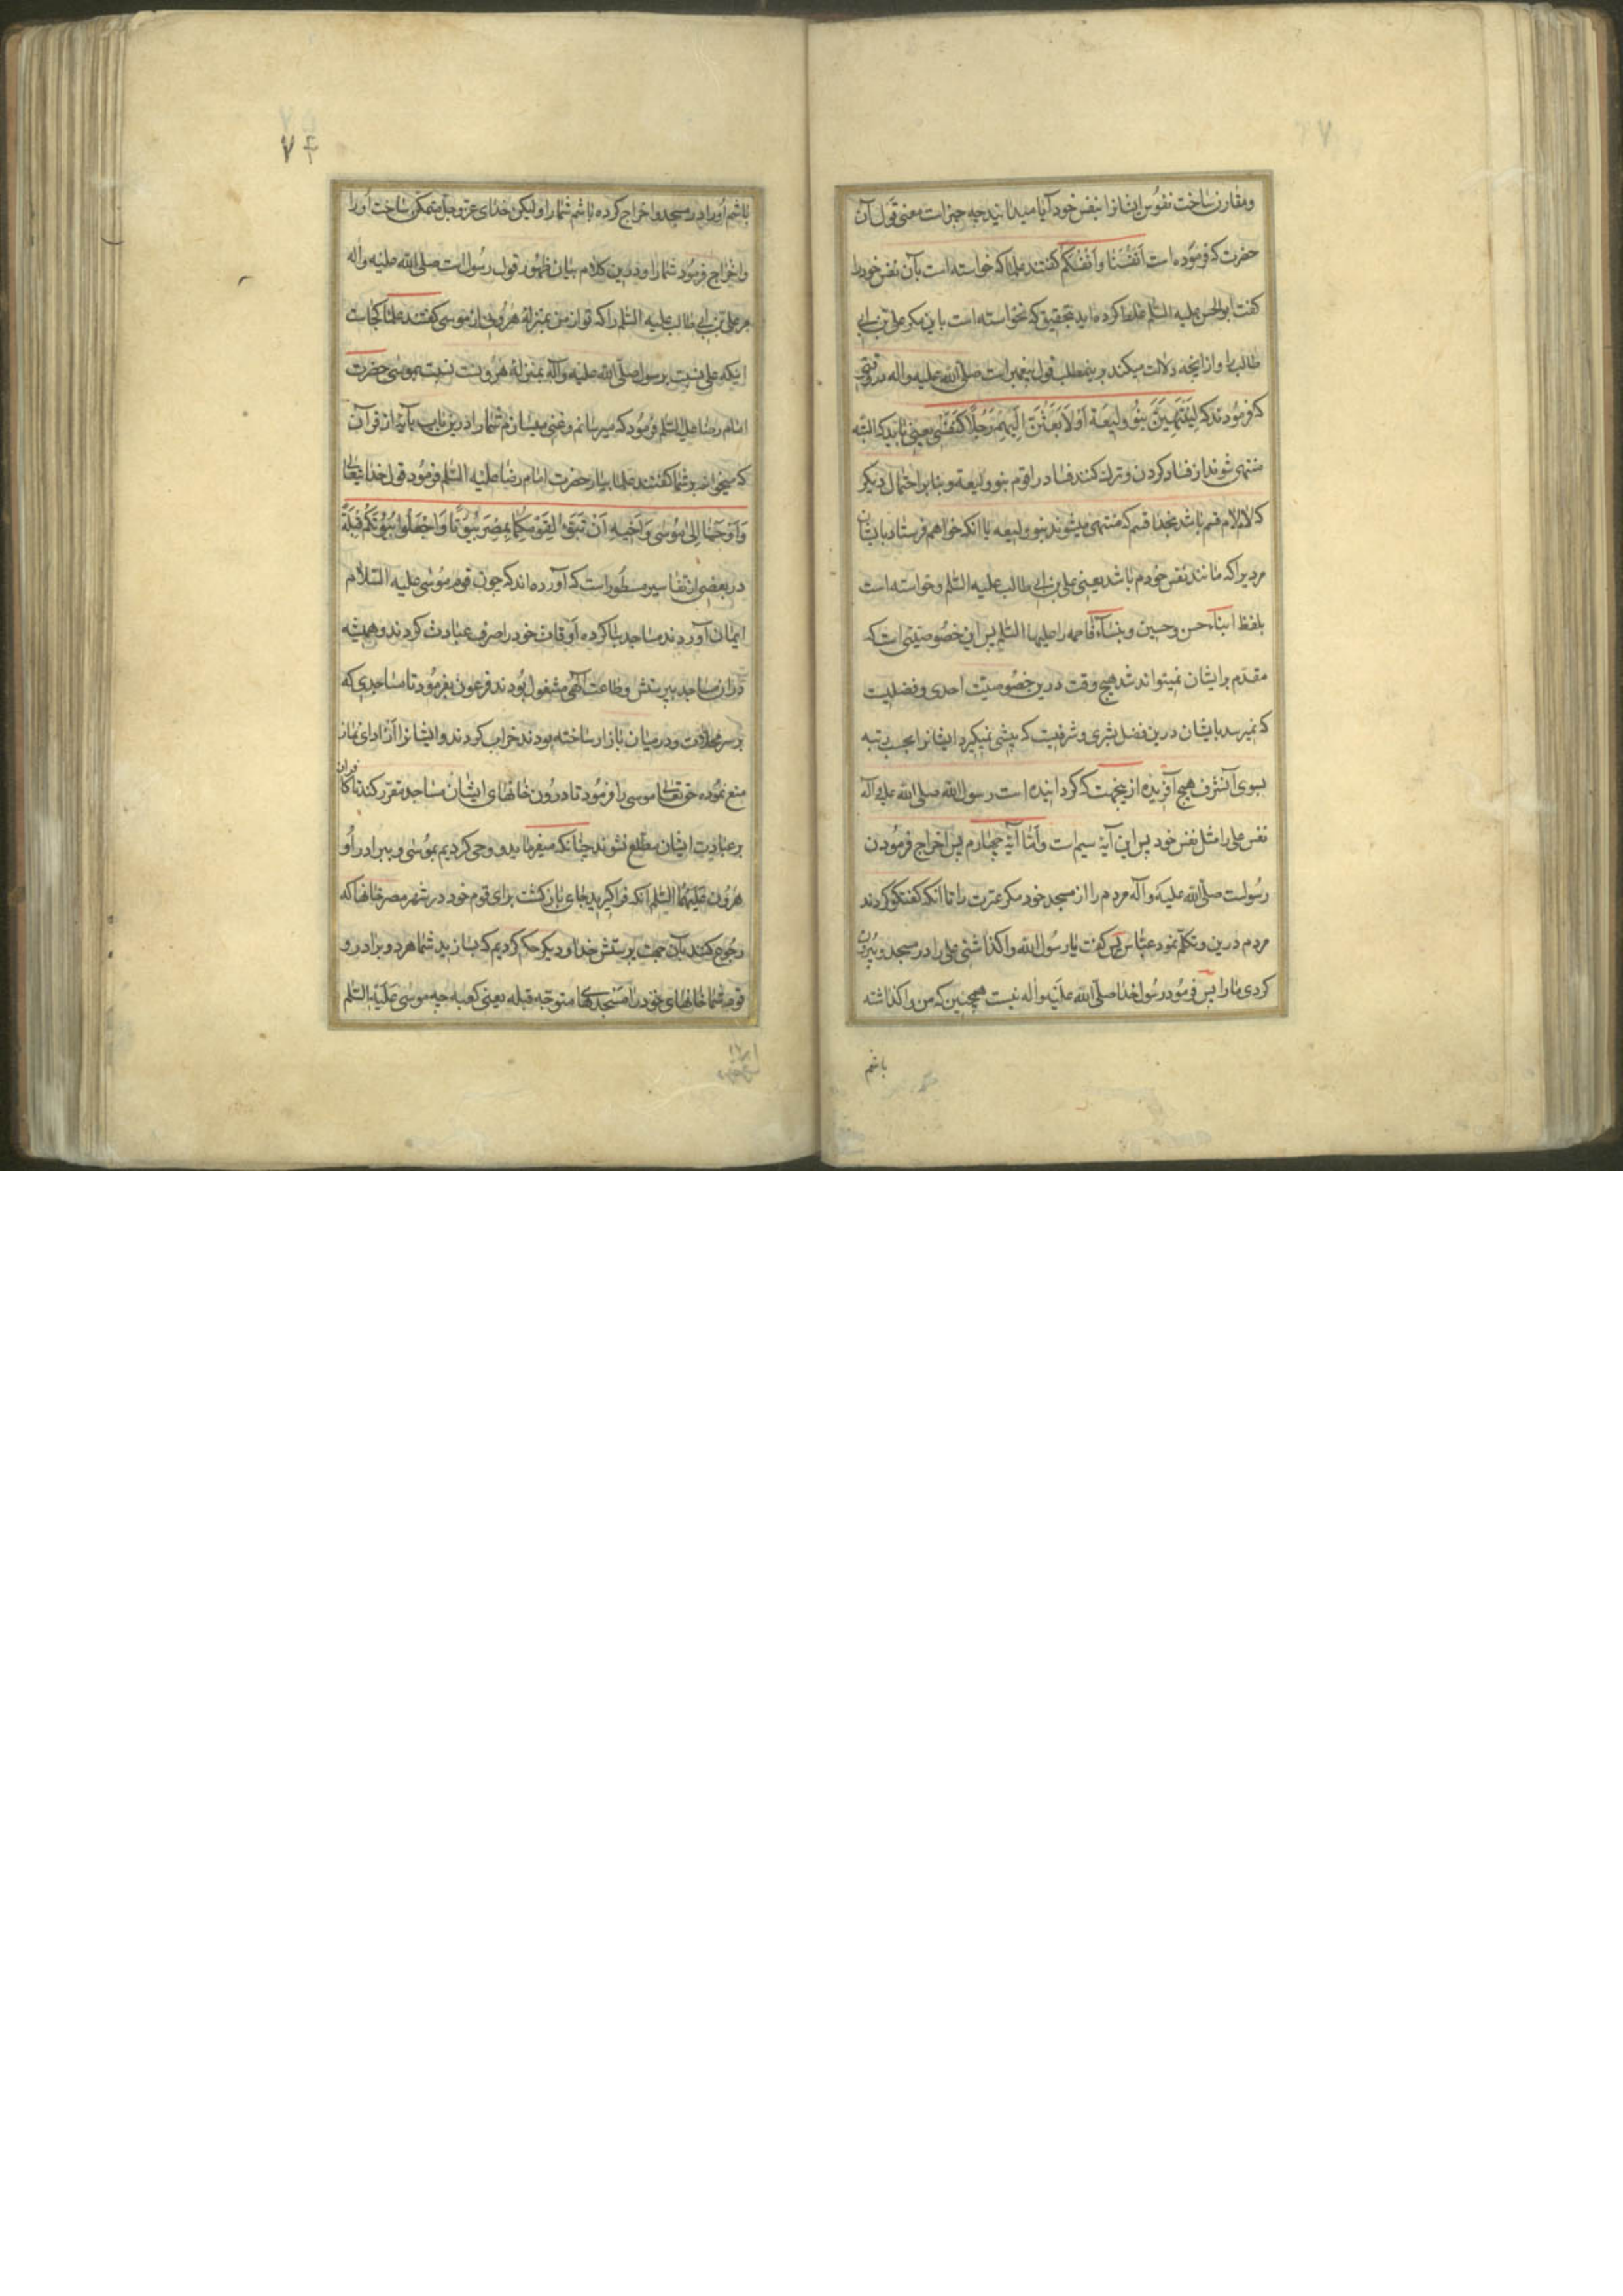 ومقارن ساخت نفوس ایشانرا بنفس خود آیا میدانید چه چیزاست معنی قول آن
حضرت که فرموده است اَنْفُسَنَا وَاَنْفُسَكُمْ گفتند علما که خواسته است بآن نفس خود را
گفت ابوالحسن علیه السّلم غلط کرده اید بتحقیق که نخواسته است باین مکر علی بن ابی
طالب را وازانچه دلالت میکند برینمطلب قول پیغمبراست صلی الله علیه واله در وقتی
که فرمودند که لَيَنْتَهِيَنَّ بَنُو وَلِيعَة اَوْ لَاَبْعَثَنَّ اِلَيْهِمْ رَجُلًا كَنَفْسِی یعنی باید که البته
منتهی شوند از فساد کردن و ترک کنند فساد را قوم بنو ولیعة و بنابر احتمال دیکر
که لام لام قسم باشد بخدا قسم که منتهی میشوند بنو ولیعه یا انکه خواهم فرستاد بایشان
مردیرا که مانند نفس خودم باشد یعنی علی بن ابی طالب علیه السّلم وخواسته است
بلفظ ابناء حسن وحسین و بنساء فاطمه را علیها السّلم پس این خصوصیتی است که
مقدم برایشان نمیتواند شد هیچ وقت درین خصوصیّت احدی و فضلیست
که نمیرسد بایشان درین فضل بشری و شرفیست که پیشی نمیگیرد ایشانرا بحسب رتبه
بسوی آنشرف هیچ آفریده ازینجهت که کردانیده است رسول الله صلی الله علیه وآله
نفس علی را مثل نفس خود پس این آیة سیم است وَاَمّا آیة چهارم پس اخراج فرمودن
رسولست صلّی الله علیه وآله مردم را از مسجد خود مکر عترت را تا آنکه گفتگو کردند
مردم درین و تکلّم نمود عبّاس پس گفت یا رسول الله واکذاشتی علی را در مسجد و بیرون
کردی ما را پس فرمود رسول خدا صلّی الله علیه واله نیست همچنین که من واکذاشته
باشم
۷۴
باشم اورا در مسجد واخراج کرده باشم شما را ولیکن خدای عز وجل متمکن ساخت اورا
واخراج فرمود شما را ودرین کلام بیان ظهور قول رسول است صلی الله علیه واله
مر علی بن ابی طالب علیه السّلم را که تو از من بمنزلة هرونی از موسی گفتند علما کجاست
اینکه علی نسبت برسول صلّی الله علیه وآله بمنزلة هرونست نسبت بموسی حضرت
امام رضا علیه السّلم فرمود که میرسانم وغنی میسازم شما را درین باب بآیة از قرآن
که میخوانم بر شما گفتند علما بیار حضرت امام رضا علیه السّلم فرمود قول خدا تعالی
وَاَوْحَيْنَا اِلٰى مُوسٰى وَاَخِيهِ اَنْ تَبَوَّءَا لِقَوْمِكُمَا بِمِصْرَ بُيُوتًا وَاجْعَلُوا بُيُوتَكُمْ قِبْلَةً
در بعضی از تفاسیر مسطور است که آورده اند که چون قوم موسی علیه السّلام
ایمان آوردند مساجد بنا کرده اوقات خود را صرف عبادت کردند وهمیشه
دران مساجد بپرستش وطاعت الهی مشغول بودند فرعون بفرمود تا مساجدی که
بر سر محلات و در میان بازار ساخته بودند خراب کردند وایشانرا از ادای نماز
منع نموده حقتعالی موسی را فرمود تا درون خانهای ایشان مساجد مقرر کند تا کافران
بر عبادت ایشان مطلع نشوند چنانکه میفرماید ووحی کردیم بموسی و ببرادر او
هرون علیهما السّلم انکه فرا کیرید جای بازکشت برای قوم خود در شهر مصر خانها که
رجوع کنند بآن جهت پرستش خدا و دیکر حکم کردیم که بسازید شما هر دو برادر و
قوم شما خانهای خود را مسجدها متوجّه قبله یعنی کعبه چه موسی علیه السّلم